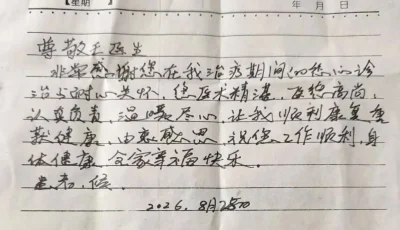 【星期 】 年 月 日
尊敬王医生
非常感谢您在我治疗期间的悉心诊
治与耐心关怀，您医术精湛，医德高尚，
认真负责，温暖尽心，让我顺利康复重
获健康，由衷感恩，祝您工作顺利，身
体健康 全家幸福快乐。
患者，
2026.8月28日